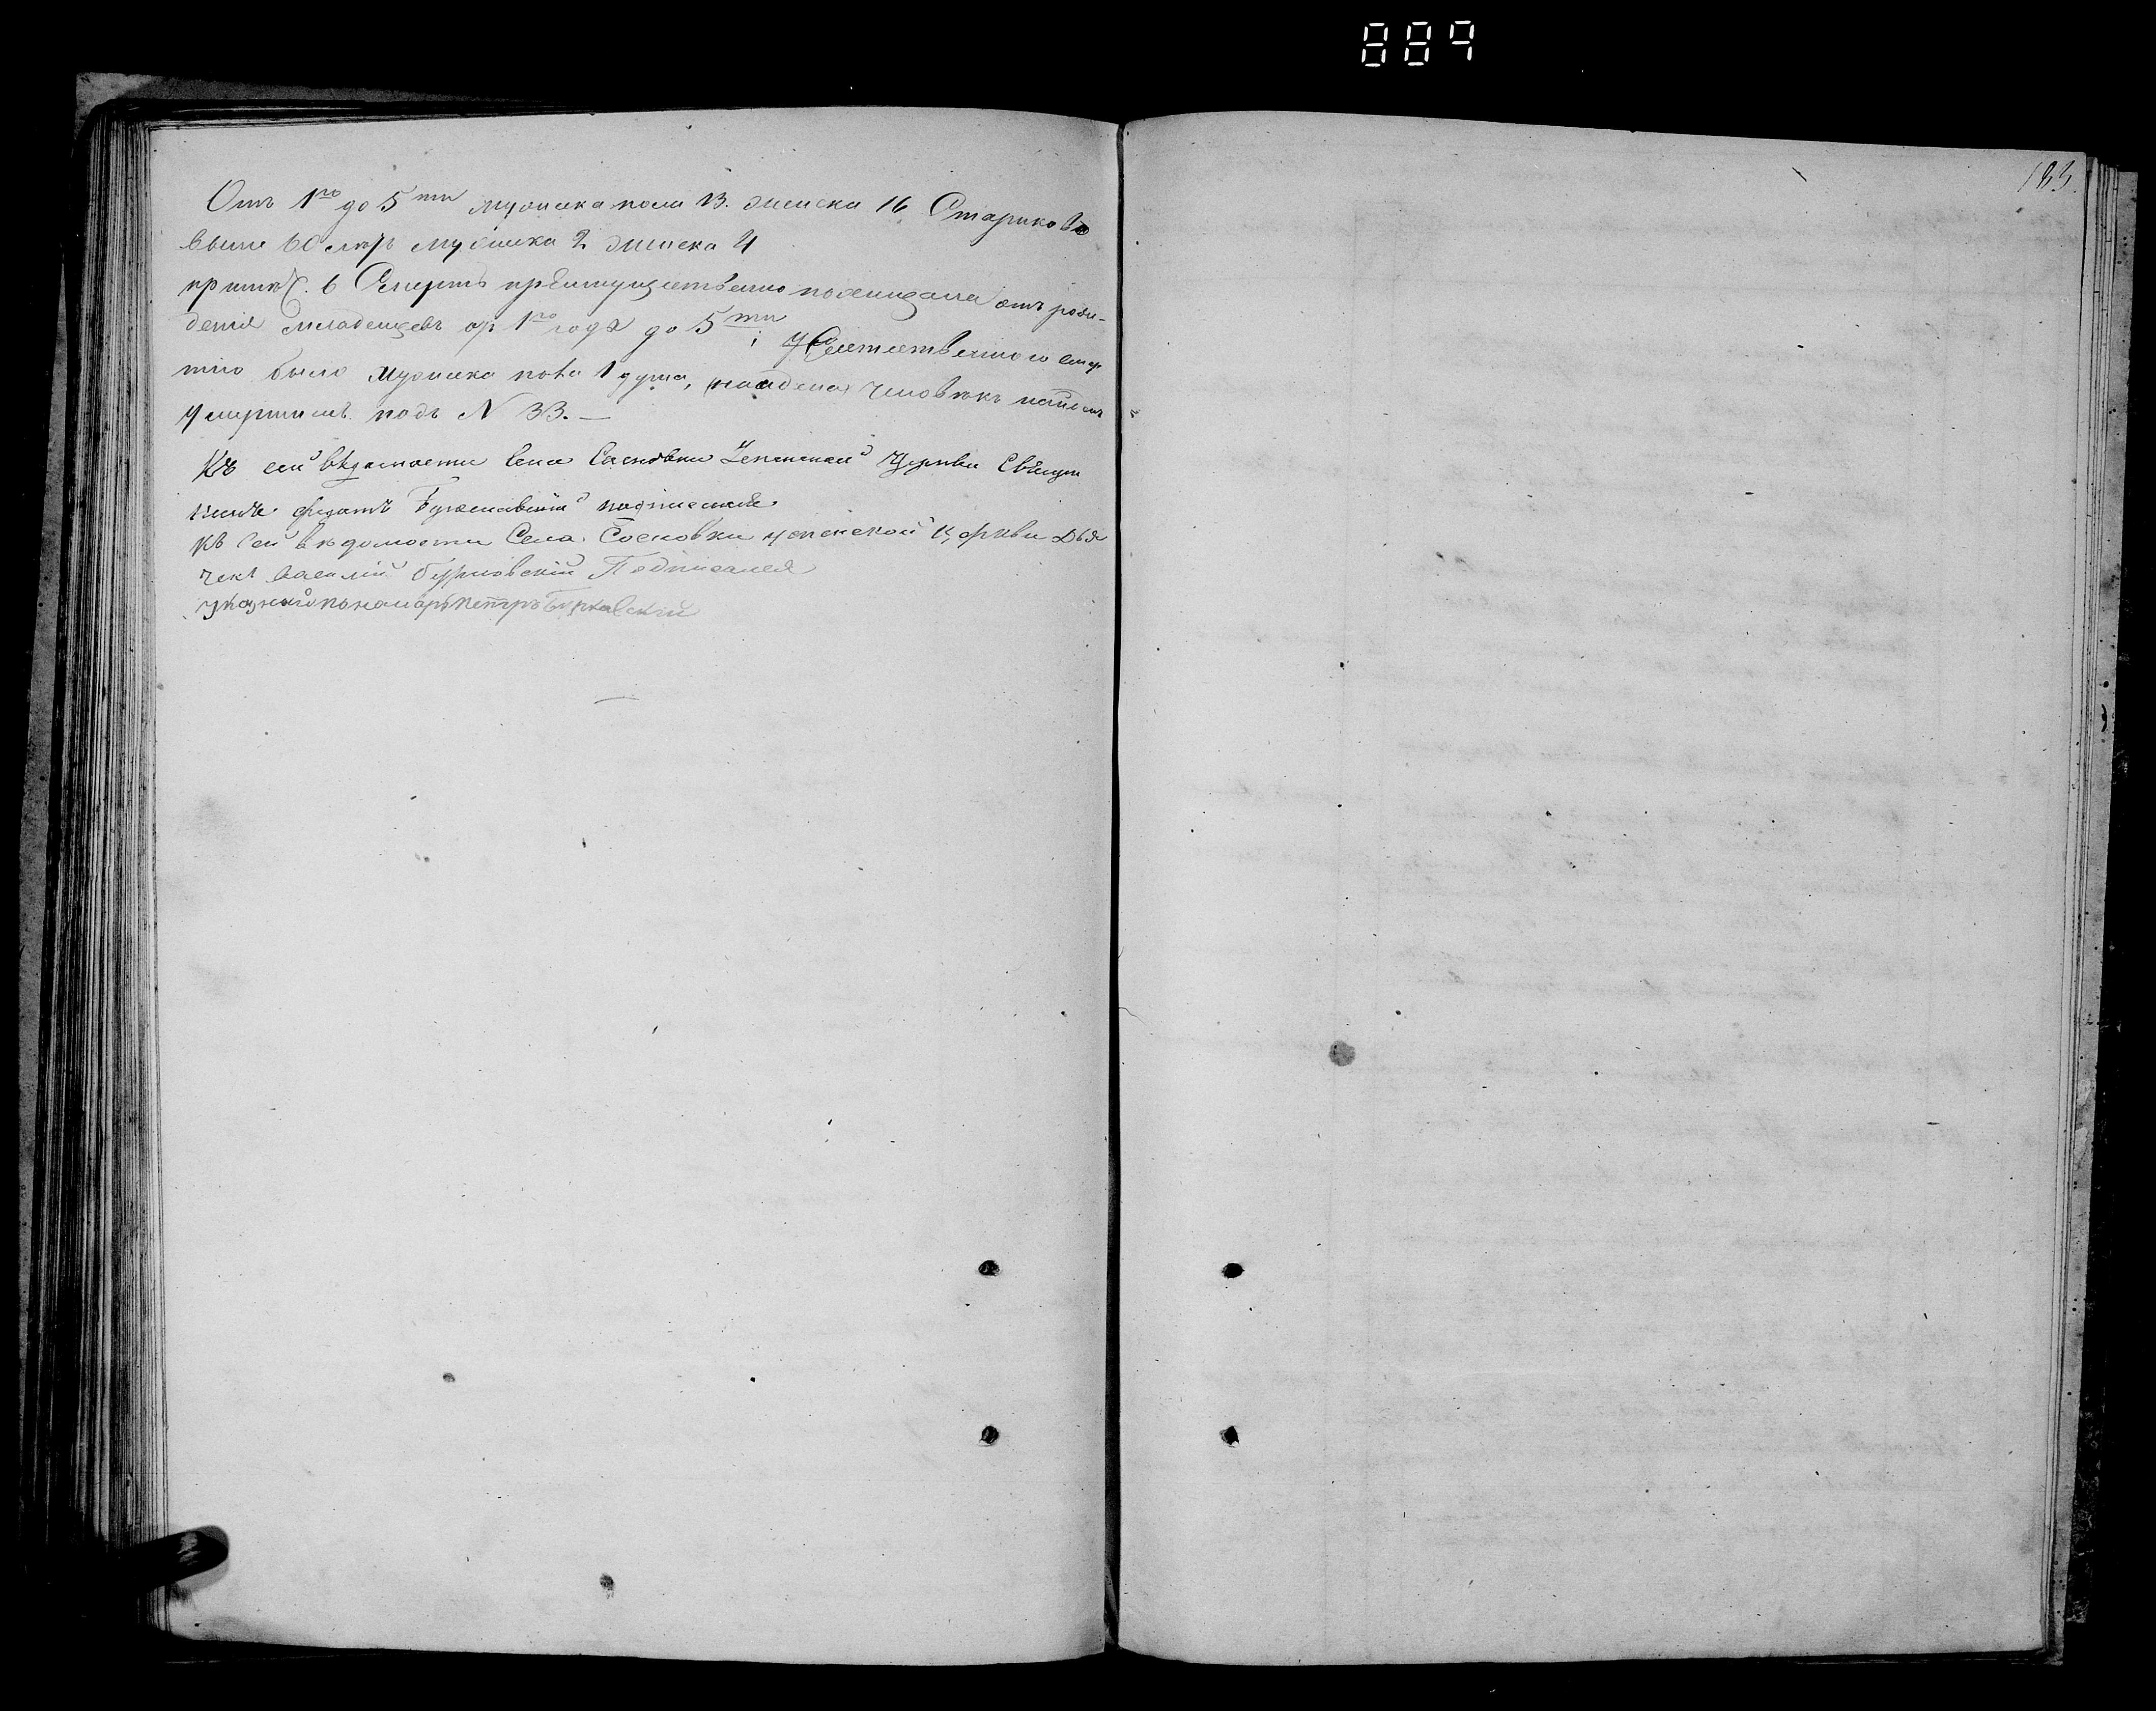 889
183.
Отъ 1го до 5ти мужеска пола 13. женска 16 Стариковъ
выше 60 лѣтъ мужска 2 женска 4
примѣч. 6 Смерть преимущественно похищала отъ рож-
денія младенцевъ отъ 1го года до 5ти;
было мужеска пола 1 душа, человѣкъ
умершимъ подъ N 33. —
Къ сей вѣдомости села Сосновки Успенской Церкви Священ
никъ подписался
къ сей вѣдомости Села Сосновки успенской церкви Дья
чекъ василій Подписался
указной пономарь петръ